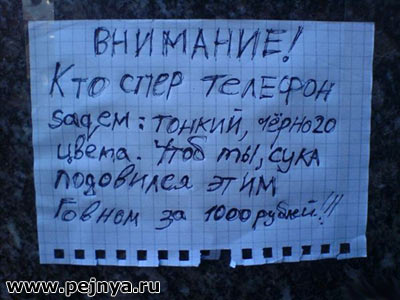 ВНИМАНИЕ!
Кто спер телефон
sagem: тонкий, чёрного
цвета. Чтоб ты, сука
подовился этим
Говном за 1000 рублей!!!
www.pejnya.ru